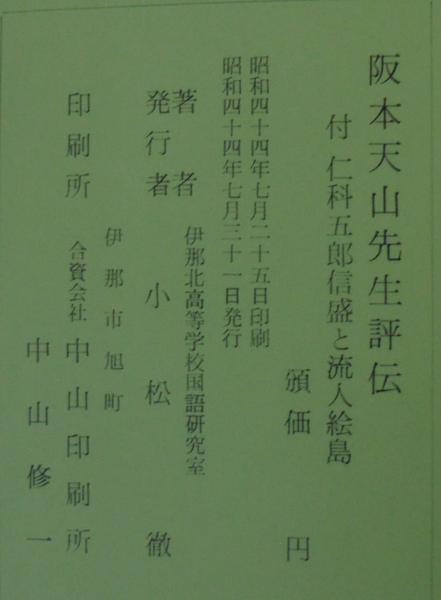 阪本天山先生評伝
付 仁科五郎信盛と流人絵島
頒価 円
昭和四十四年七月二十五日印刷
昭和四十四年七月三十一日発行
著者
発行者 伊那北高等学校国語研究室
小松徹
伊那市旭町
印刷所 合資会社 中山印刷所
中山修一